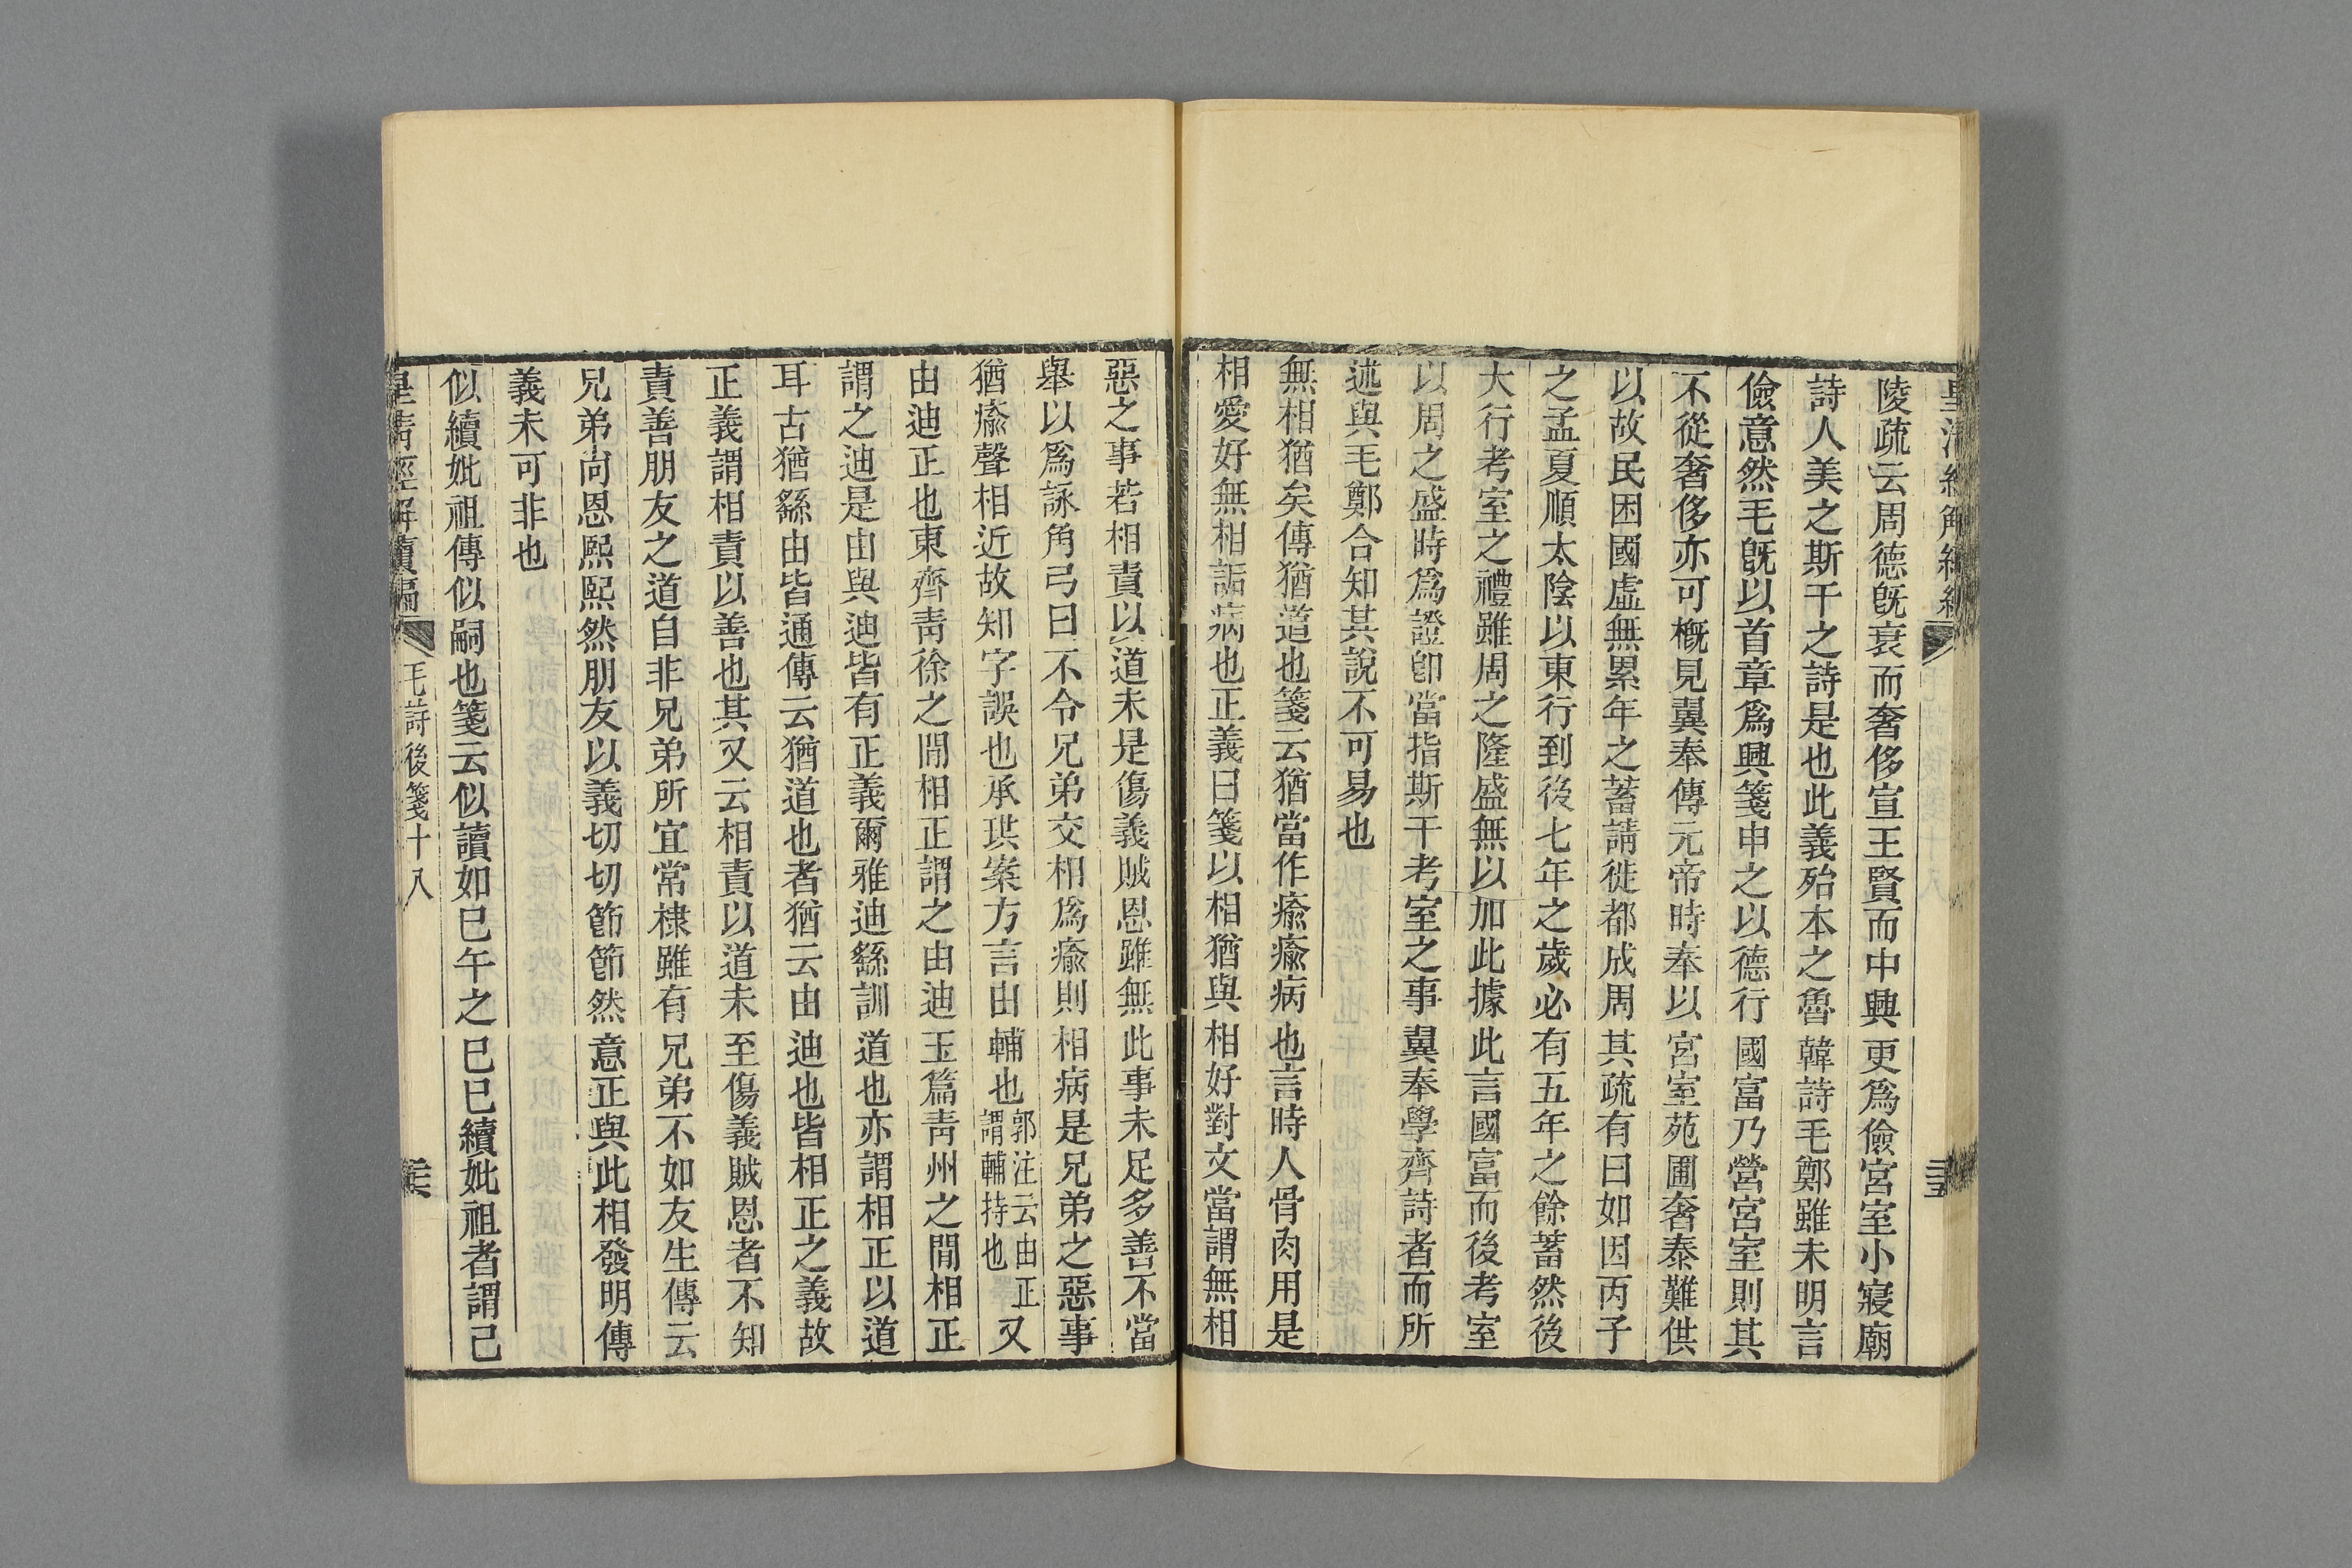 陵疏云周德旣衰而奢侈宣王賢而中興更爲儉宮室小寢廟
詩人美之斯干之詩是也此義殆本之魯韓詩毛鄭雖未明言
儉意然毛旣以首章爲興箋申之以德行國富乃營宮室則其
不從奢侈亦可槪見翼奉傳元帝時奉以宮室苑圃奢泰難供
以故民困國虛無累年之蓄請徙都成周其疏有曰如因丙子
之孟夏順太陰以東行到後七年之歲必有五年之餘蓄然後
大行考室之禮雖周之隆盛無以加此據此言國富而後考室
以周之盛時爲證卽當指斯干考室之事翼奉學齊詩者而所
述與毛鄭合知其說不可易也
無相猶矣傳猶道也箋云猶當作瘉瘉病也言時人骨肉用是
相愛好無相詬病也正義曰箋以相猶與相好對文當謂無相
惡之事若相責以道未是傷義賊恩雖無此事未足多善不當
舉以爲詠角弓曰不令兄弟交相爲瘉則相病是兄弟之惡事
猶瘉聲相近故知字誤也承珙案方言由輔也郭注云由正謂輔持也又
由迪正也東齊靑徐之閒相正謂之由迪玉篇靑州之閒相正
謂之迪是由與迪皆有正義爾雅迪繇訓道也亦謂相正以道
耳古猶繇由皆通傳云猶道也者猶云由迪也皆相正之義故
正義謂相責以善也其又云相責以道未至傷義賊恩者不知
責善朋友之道自非兄弟所宜常棣雖有兄弟不如友生傳云
兄弟尙恩熙熙然朋友以義切切節節然意正與此相發明傳
義未可非也
似續妣祖傳似嗣也箋云似讀如巳午之巳巳續妣祖者謂己
皇淸經解續編
毛詩後箋十八